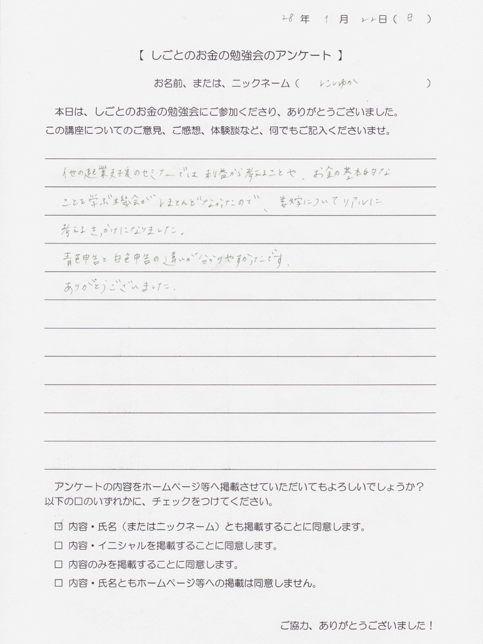 28年 1月 22日（日）
【 しごとのお金の勉強会のアンケート 】
お名前、または、ニックネーム（ ）
本日は、しごとのお金の勉強会にご参加くださり、ありがとうございました。
この講座についてのご意見、ご感想、体験談など、何でもご記入くださいませ。
他の起業支援のセミナーでは利益から考えることや、お金の基本的な
ことを学ぶ機会がほとんどなかったので、についてリアルに
考えるきっかけになりました。
青色申告と白色申告の違いが分かりやすかったです。
ありがとうございました。
アンケートの内容をホームページ等へ掲載させていただいてもよろしいでしょうか？
以下の口のいずれかに、チェックをつけてください。
☑ 内容・氏名（またはニックネーム）とも掲載することに同意します。
□ 内容・イニシャルを掲載することに同意します。
□ 内容のみを掲載することに同意します。
□ 内容・氏名ともホームページ等への掲載は同意しません。
ご協力、ありがとうございました！